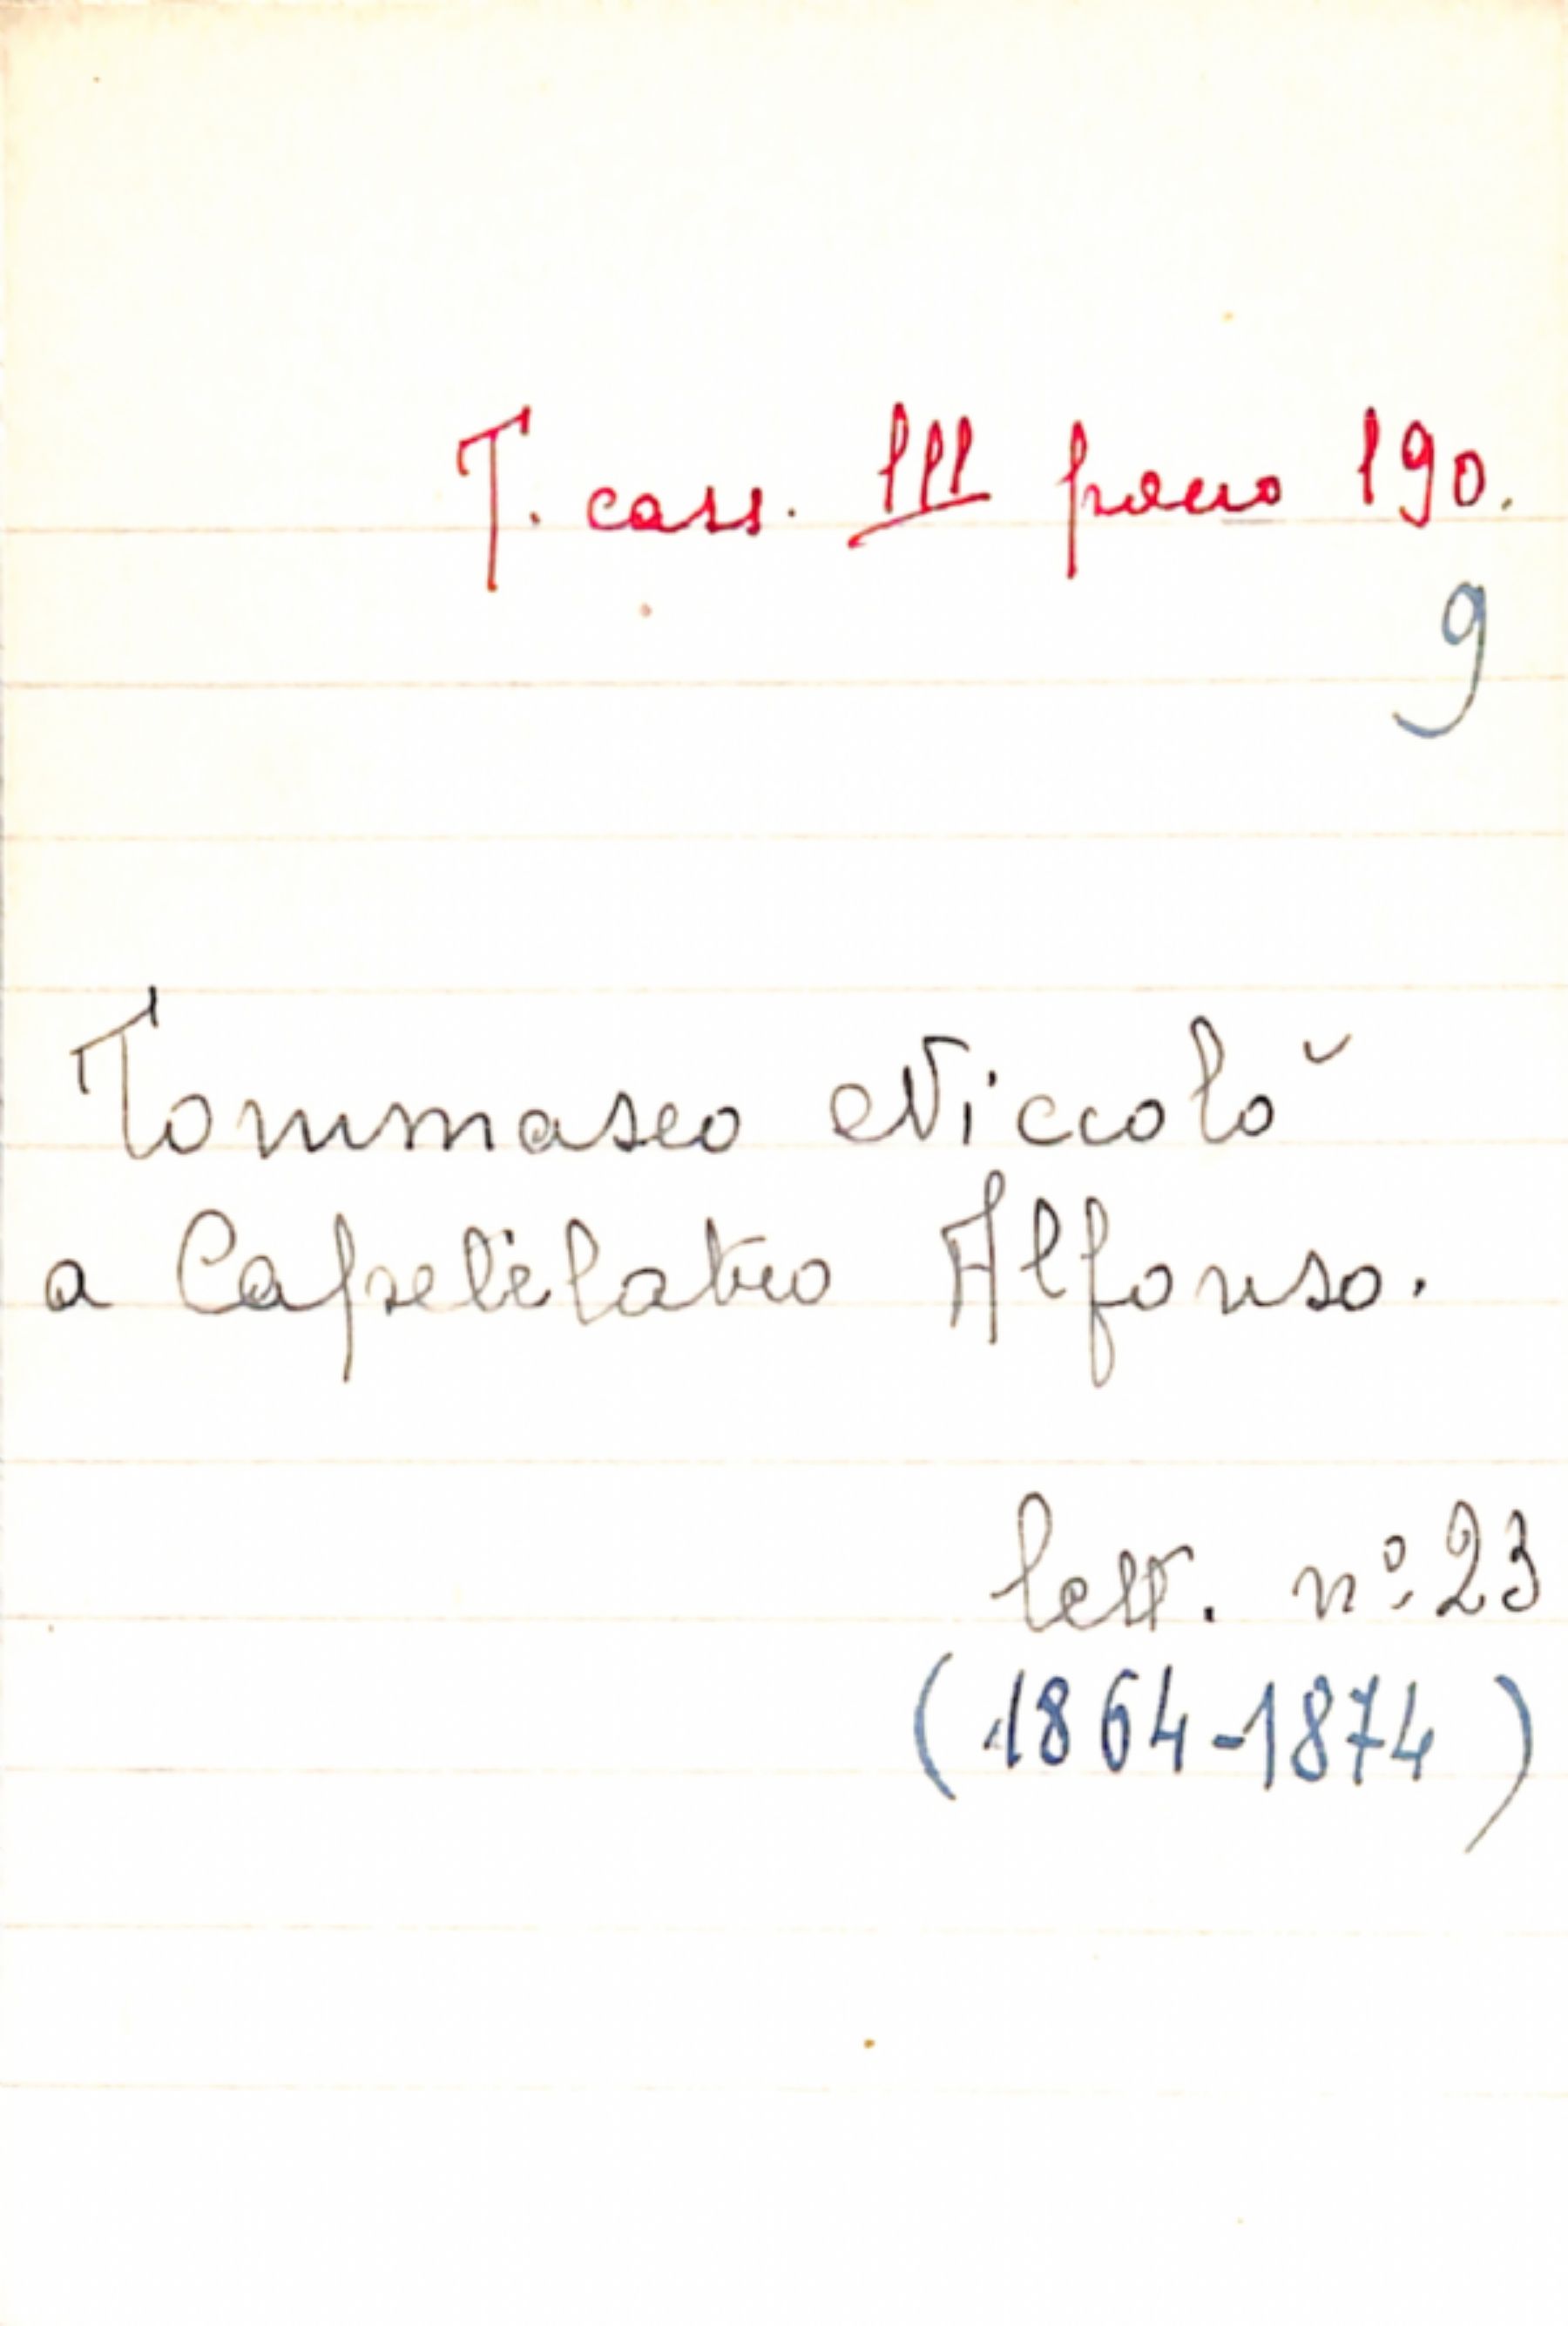 T. cass. III pacco 190.
9
Tommaseo Niccolò
a Capecelatro Alfonso.
lett. n° 23
(1864-1874)